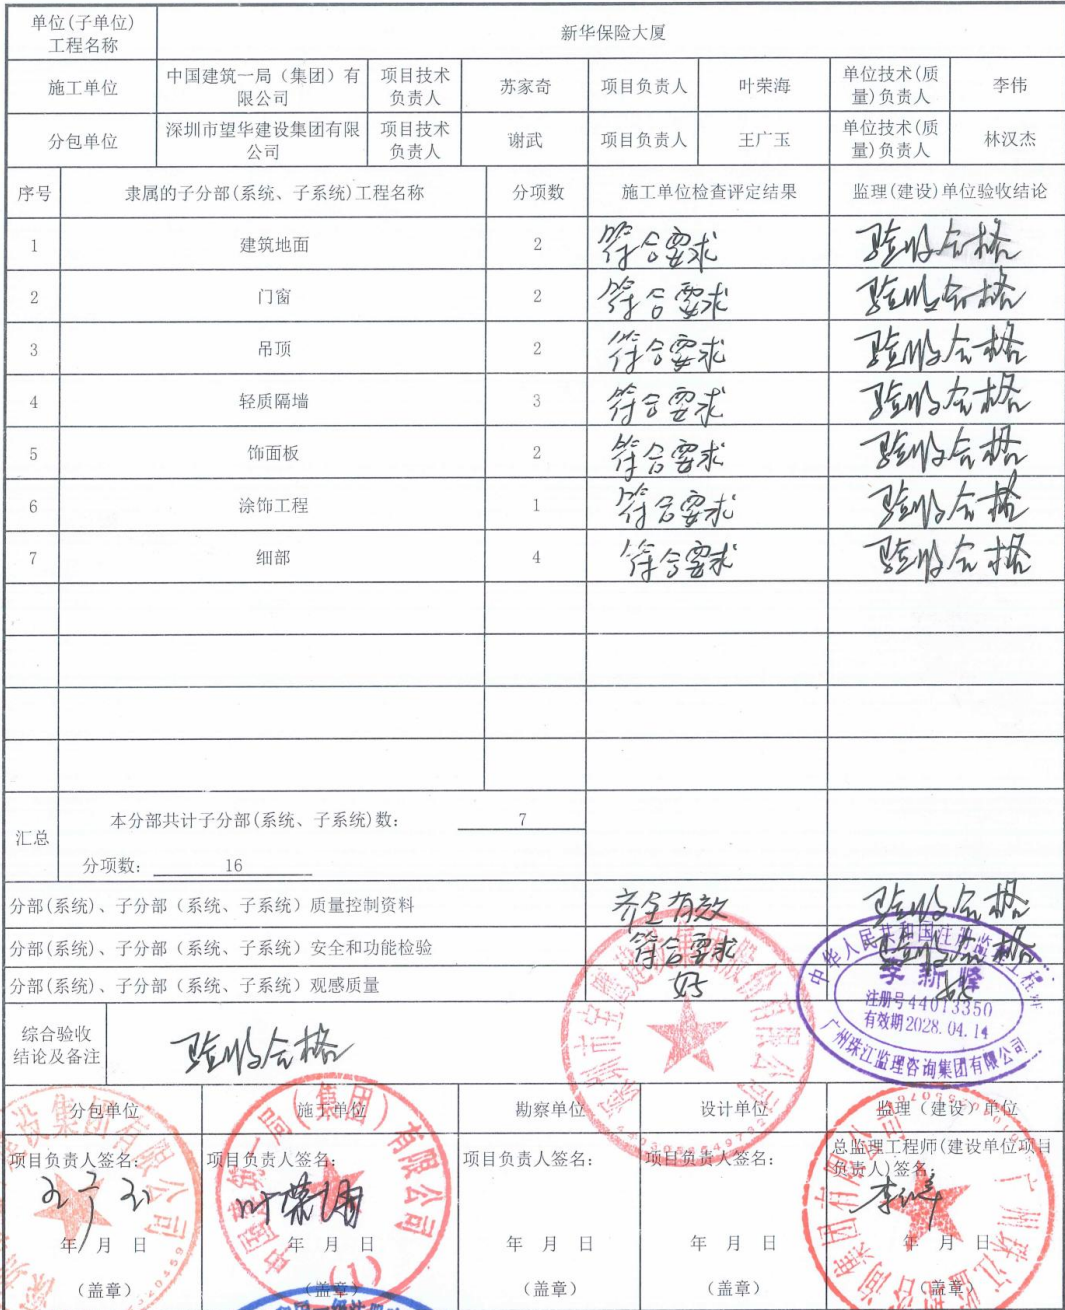 单位(子单位)
工程名称
新华保险大厦
施工单位
中国建筑一局（集团）有
限公司
项目技术
负责人
苏家奇
项目负责人
叶荣海
单位技术(质
量)负责人
李伟
分包单位
深圳市望华建设集团有限
公司
项目技术
负责人
谢武
项目负责人
王广玉
单位技术(质
量)负责人
林汉杰
序号 隶属的子分部(系统、子系统)工程名称 分项数 施工单位检查评定结果 监理(建设)单位验收结论
1 建筑地面 2 符合要求 验收合格
2 门窗 2 符合要求 验收合格
3 吊顶 2 符合要求 验收合格
4 轻质隔墙 3 符合要求 验收合格
5 饰面板 2 符合要求 验收合格
6 涂饰工程 1 符合要求 验收合格
7 细部 4 符合要求 验收合格
汇总
本分部共计子分部(系统、子系统)数: 7
分项数: 16
分部(系统)、子分部（系统、子系统）质量控制资料 齐全有效 验收合格
分部(系统)、子分部（系统、子系统）安全和功能检验 符合要求 验收合格
分部(系统)、子分部（系统、子系统）观感质量 好 好
中华人民共和国注册监理工程师
李新峰
注册号44013350
有效期2028.04.14
广州珠江监理咨询集团有限公司
综合验收
结论及备注
验收合格
分包单位 施工单位 勘察单位 设计单位 监理（建设）单位
项目负责人签名: 项目负责人签名: 项目负责人签名: 项目负责人签名: 总监理工程师(建设单位项目
负责人)签名:
王广玉 叶荣海
年 月 日 年 月 日 年 月 日 年 月 日 年 月 日
（盖章） （盖章） （盖章） （盖章） （盖章）
建设集团有限公司
中国建筑一局(集团)有限公司
(1)